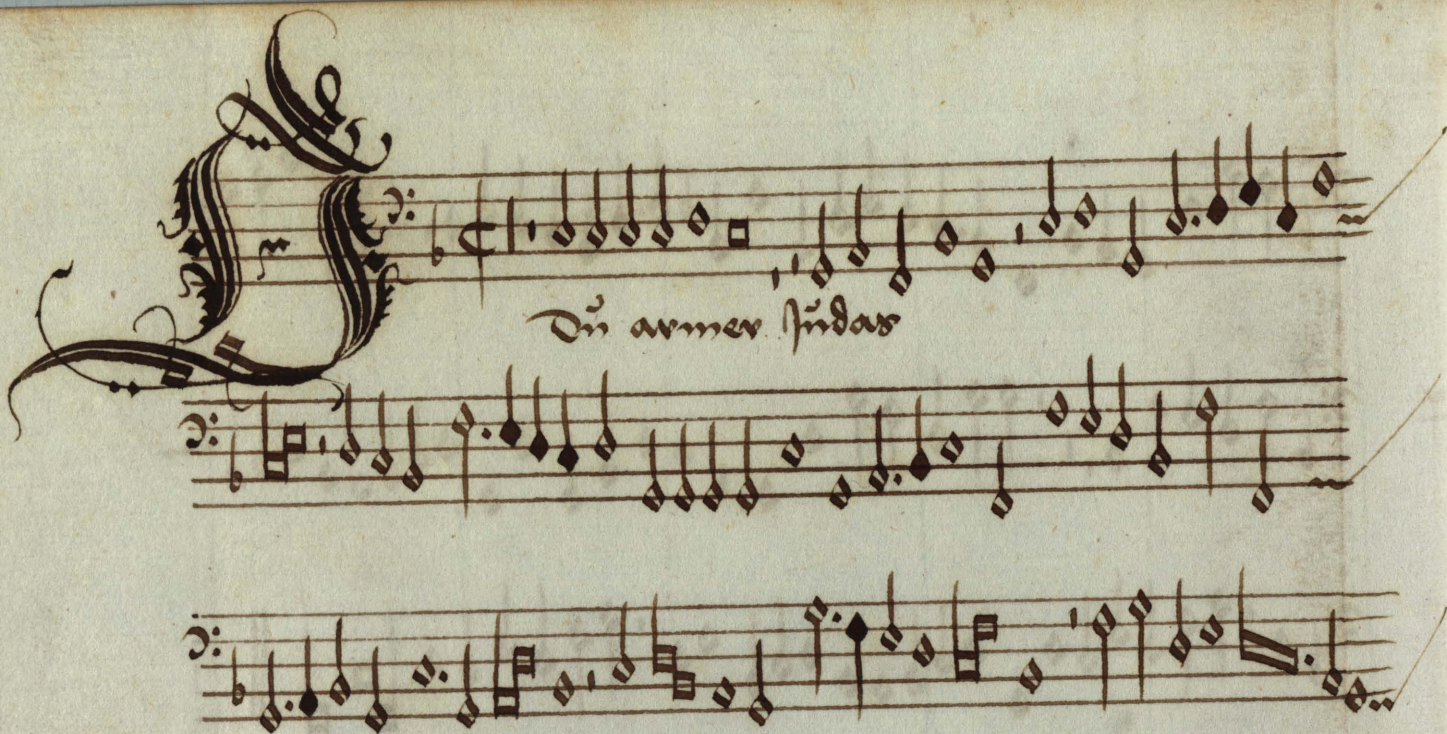 Dū armer Jūdas